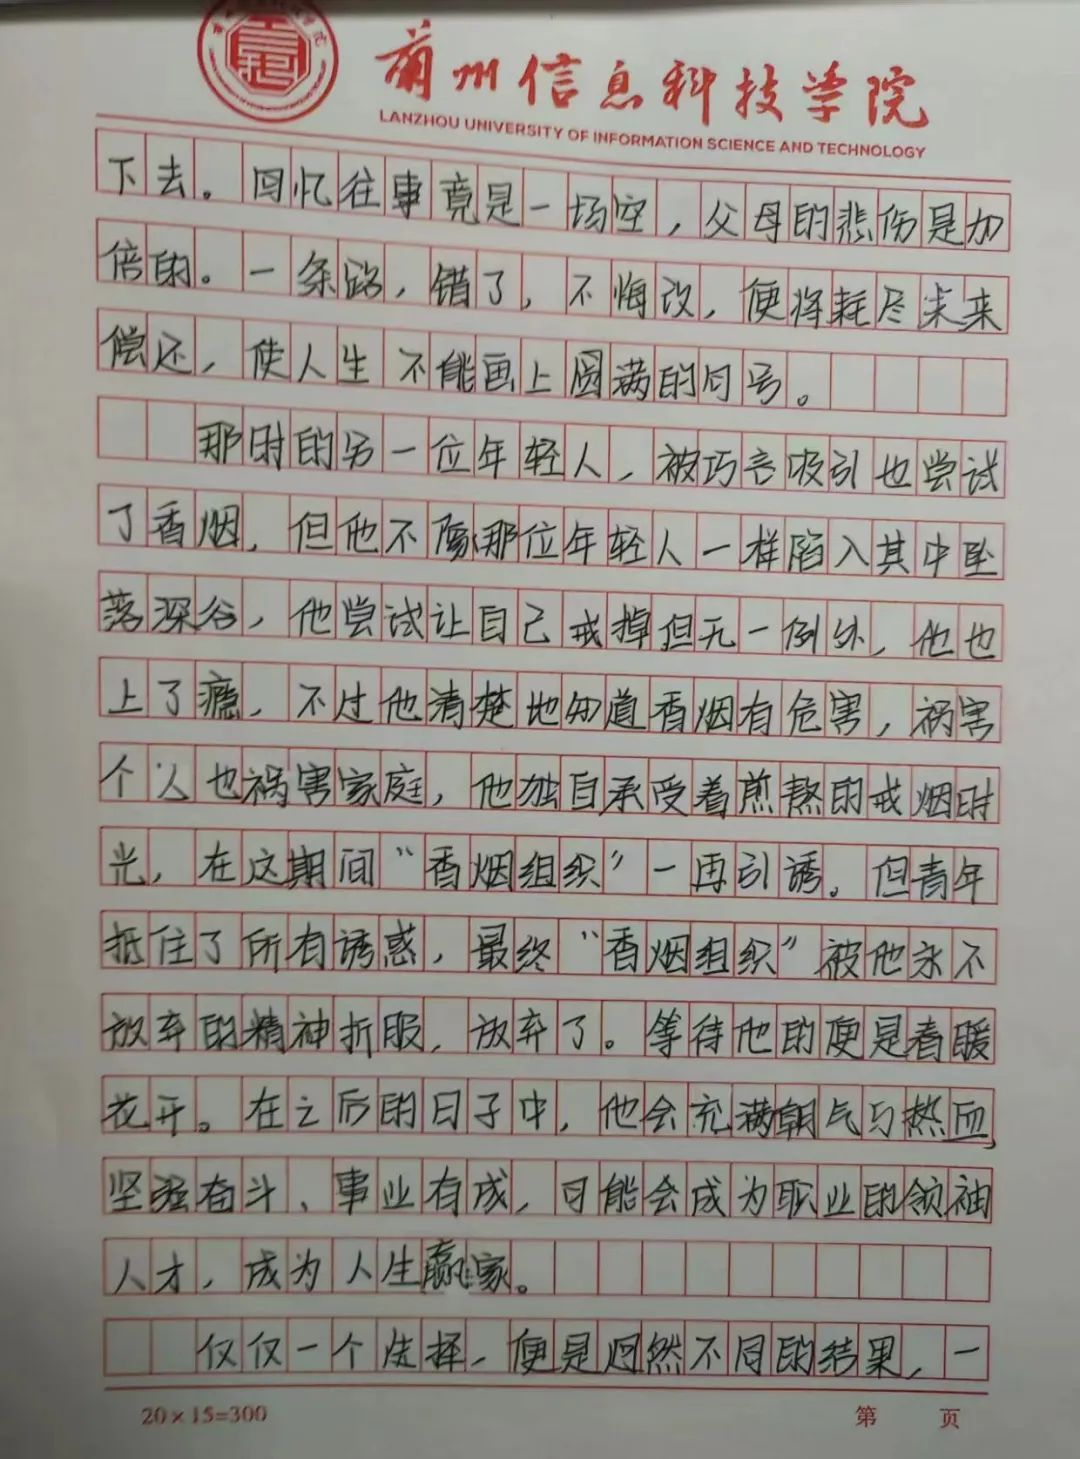 兰州信息科技学院
LANZHOU UNIVERSITY OF INFORMATION SCIENCE AND TECHNOLOGY
下去。回忆往事竟是一场空，父母的悲伤是加
倍的。一条路，错了，不悔改，便将耗尽未来
偿还，使人生不能画上圆满的句号。
那时的另一位年轻人，被巧言吸引也尝试
了香烟，但他不像那位年轻人一样陷入其中坠
落深谷，他尝试让自己戒掉但无一例外，他也
上了瘾，不过他清楚地知道香烟有危害，祸害
个人也祸害家庭，他独自承受着煎熬的戒烟时
光，在这期间“香烟组织”一再引诱。但青年
抵住了所有诱惑，最终“香烟组织”被他永不
放弃的精神折服，放弃了。等待他的便是春暖
花开。在之后的日子中，他会充满朝气与热血，
坚强奋斗、事业有成，可能会成为职业的领袖
人才，成为人生赢家。
仅仅一个选择，便是迥然不同的结果，一
20×15=300
第 页